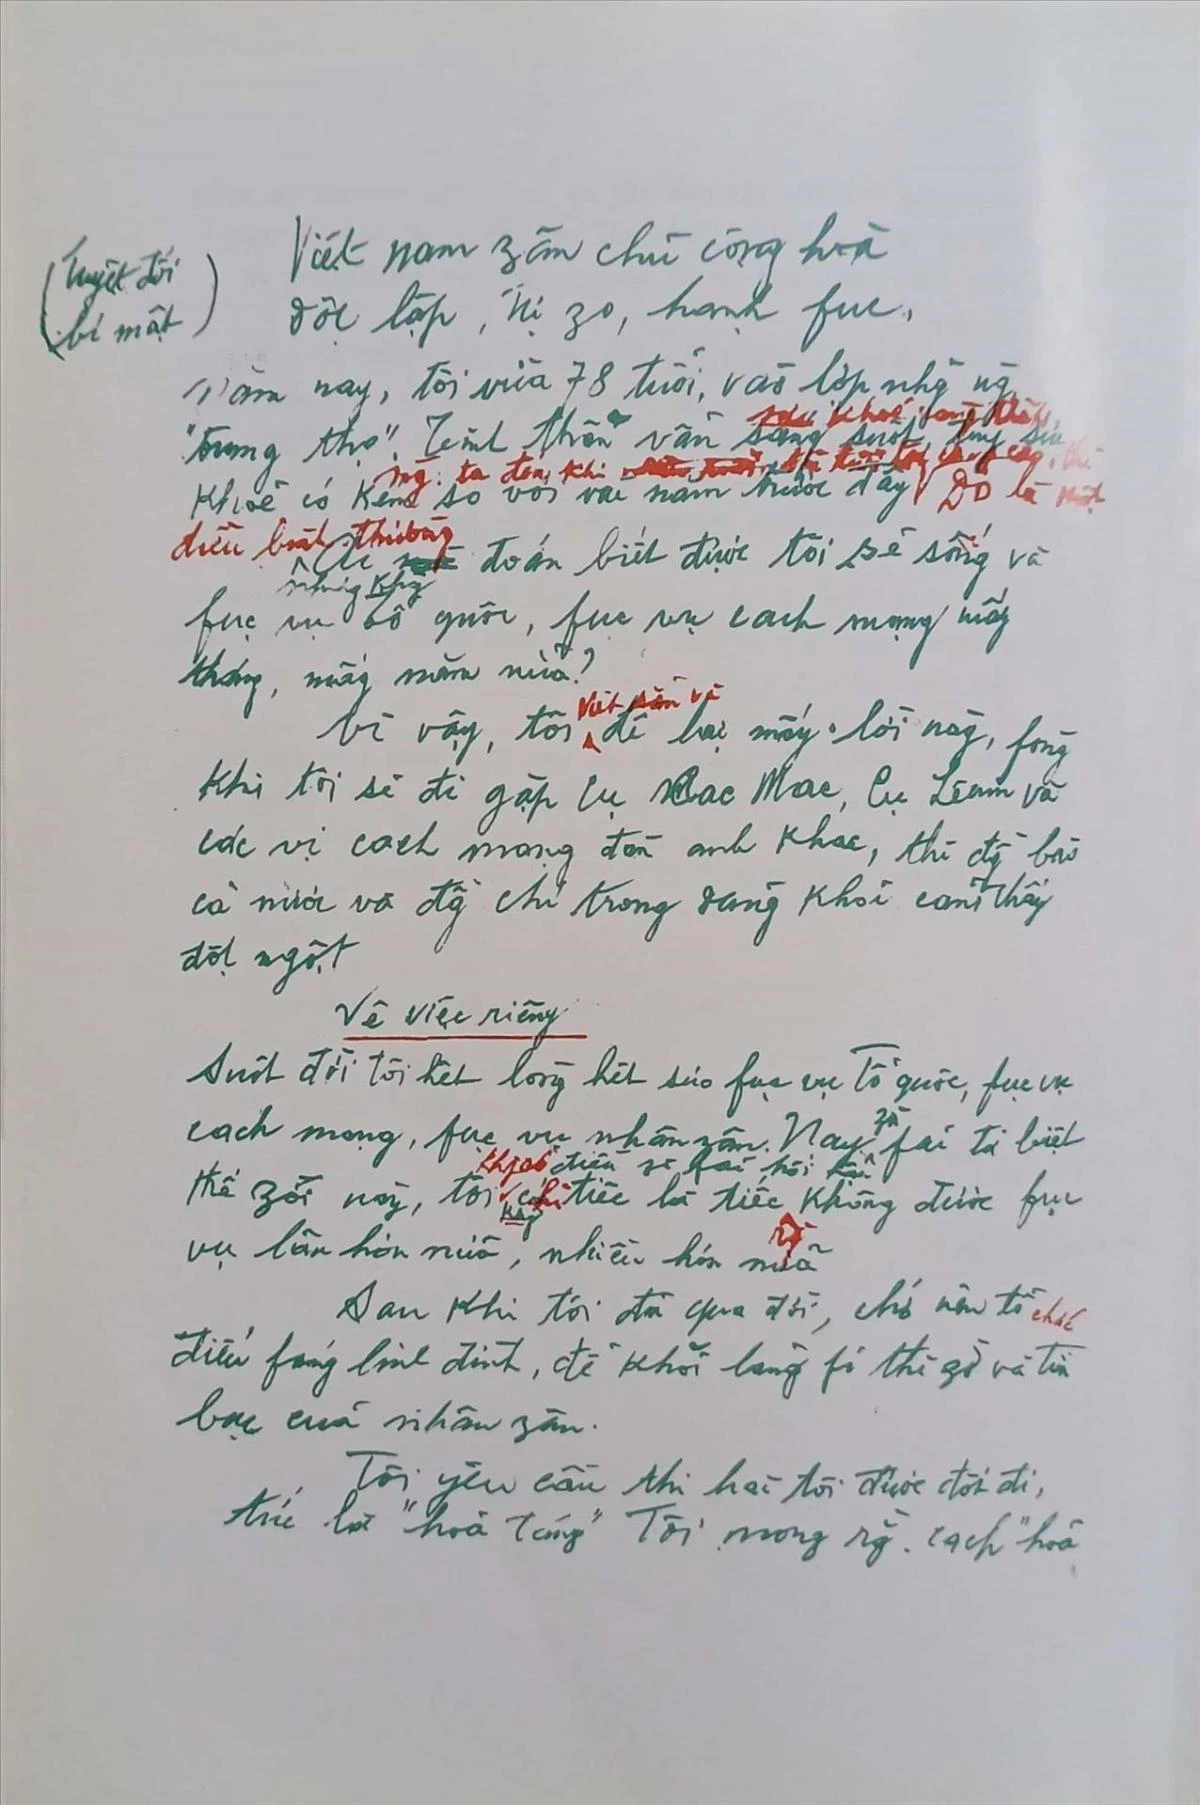 (Tuyệt đối
bí mật)
Việt nam zân chủ cộng hoà
độc lập, tự zo, hạnh fúc.
Năm nay, tôi vừa 78 tuổi, vào lớp nhữ ng
"trung thọ". Tinh thần vẫn sáng suốt, tuy sức
khoẻ có kém so với vài năm trước đây
Đó là một
điều bình thường
Nhưng ai đoán biết được tôi sẽ sống và
fục vụ tổ quốc, fục vụ cách mạng mấy
tháng, mấy năm nữa?
Viết sẵn và
Vì vậy, tôi để lại mấy lời này, fòng
khi tôi sẽ đi gặp cụ Các Mác, Cụ Lênin và
các vị cách mạng đàn anh khác, thì đồ bào
cả nước và đồ chí trong đảng khỏi cảm thấy
đột ngột
Về việc riêng
Suốt đời tôi hết lòng hết sức fục vụ Tổ quốc, fục vụ
cách mạng, fục vụ nhân zân. Nay zù fải từ biệt
không điều gì fải hối hận
thế zới này, tôi chỉ tiếc là tiếc không được fục
vụ lâu hơn nữa, nhiều hơn nữa
Sau khi tôi đã qua đời, chớ nên tổ chức
điếu fúng linh đình, để khỏi lãng fí thì zờ và tiền
bạc của nhân zân.
Tôi yêu cầu thi hài tôi được đốt đi,
tức là "hoả táng" Tôi mong rằ. cách "hoả